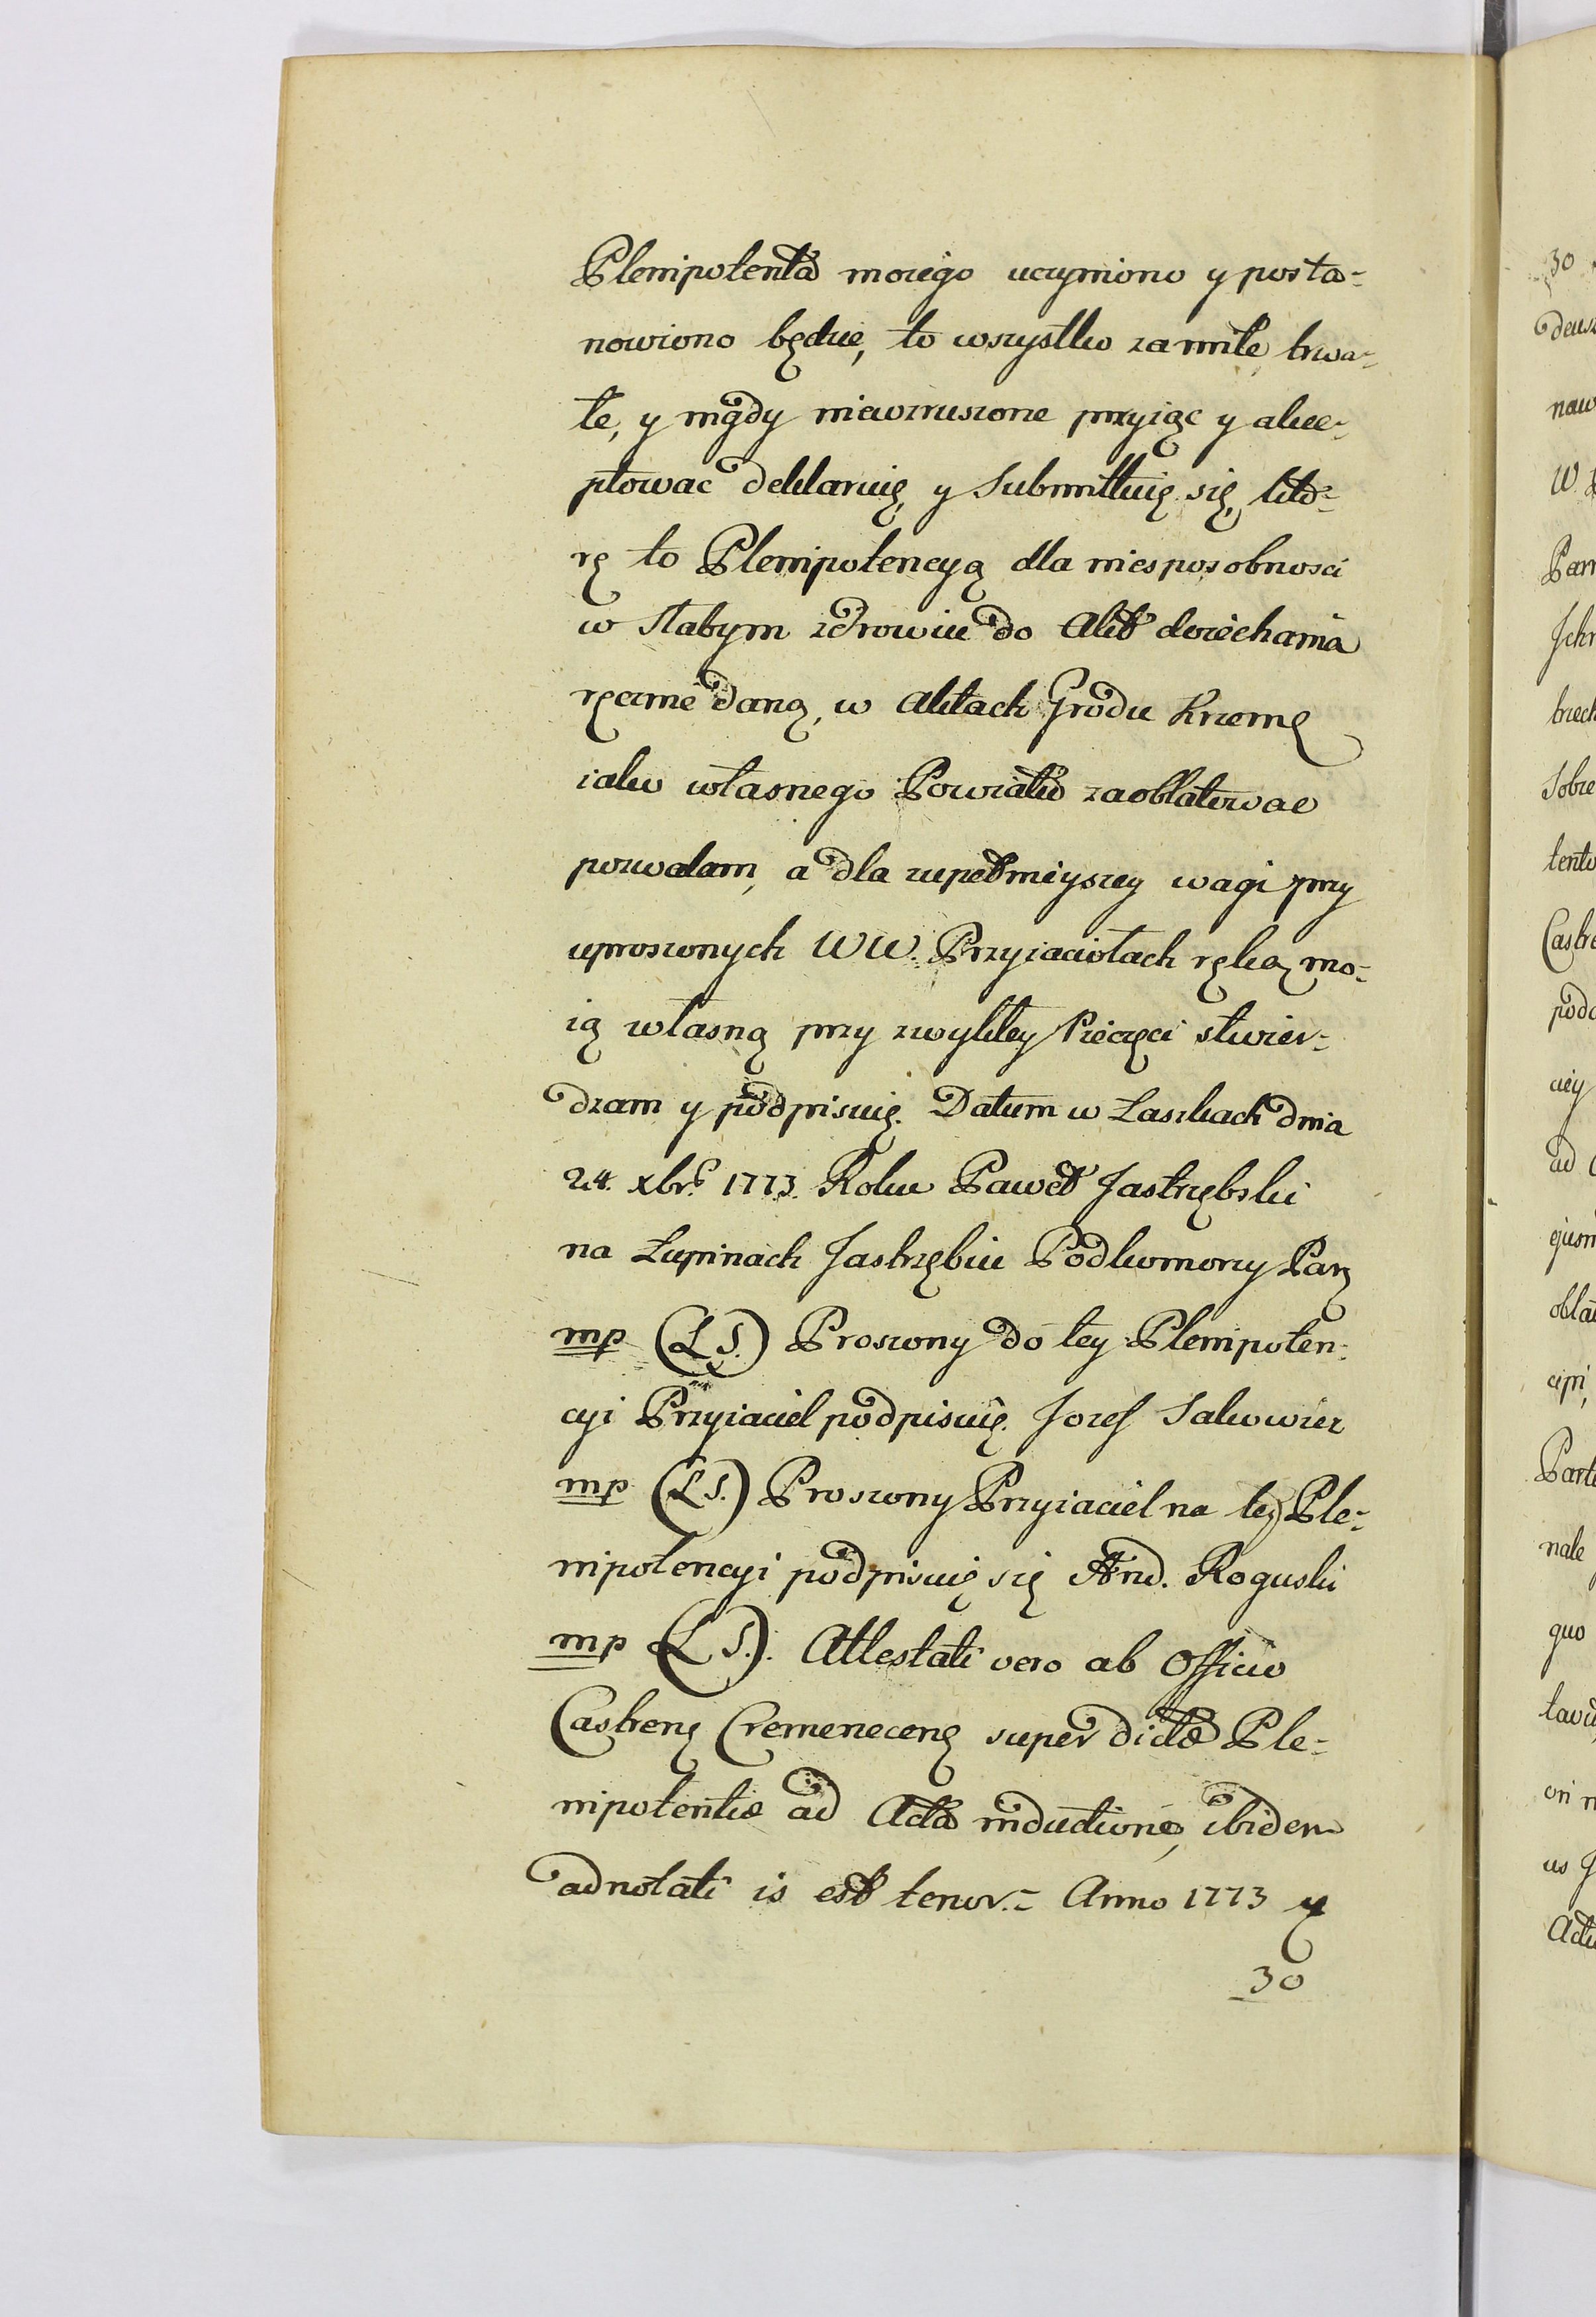 Plenipotenta moiego uczyniono y posta-
nowiono będzie, to wszystko za miłe, trwa-
łe, y nigdy niewzruszone przyiąc y akce-
ptowac deklaruię, y submittuię się, któ-
rę to Plenipotencyą dla niesposobnosci
w słabym zdrowiu do Akt doiechania
ręcznie daną, w Aktach Grodu Krzemę
iako własnego Powiatu zaoblatowac
pozwalam, a dla zupełnieyszey wagi przy
uproszonych WW. Przyiaciołach ręką mo-
ią własną przy zwykłey Pieczęci stwier-
dzam y podpisuię. Datum w Laszkach dnia
24. xbrs 1773. Roku Paweł Jastrzębski
na Łupinach Jastrzębiu Podkomorzy Parę
mp (L S.) Proszony do tey Plenipoten-
cyi Przyiaciel podpisuię. Jozef Sakowicz
mp (L S.) Proszony Przyiaciel na tey Ple-
nipotencyi podpisuię się And. Roguski
mp (L S.). Attestati vero ab Officio
Castrenę Cremenecenę super dictæ Ple-
nipotentiæ ad Acta inductione, ibidem
adnotati is est tenor.- Anno 1773 y
30
30
deusz
naw
W
Parn
Jchm
brzech
Sobie
tento
Castre
poda
ciey
ad
ejusm
obla
cipi,
Parte
nale
quo
tawu
ori
us J
Actu